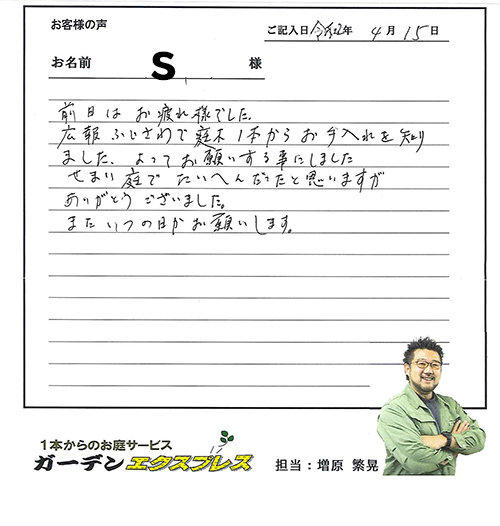 お客様の声
ご記入日 令和2年 4月 15日
お名前 S 様
前日はお疲れ様でした。
広報ふじさわで庭木1本からお手入れを知り
ました、よってお願いする事にしました
せまい庭でたいへんだったと思いますが
ありがとうございました。
またいつの日かお願いします。
1本からのお庭サービス
ガーデンエクスプレス
担当:増原 繁晃